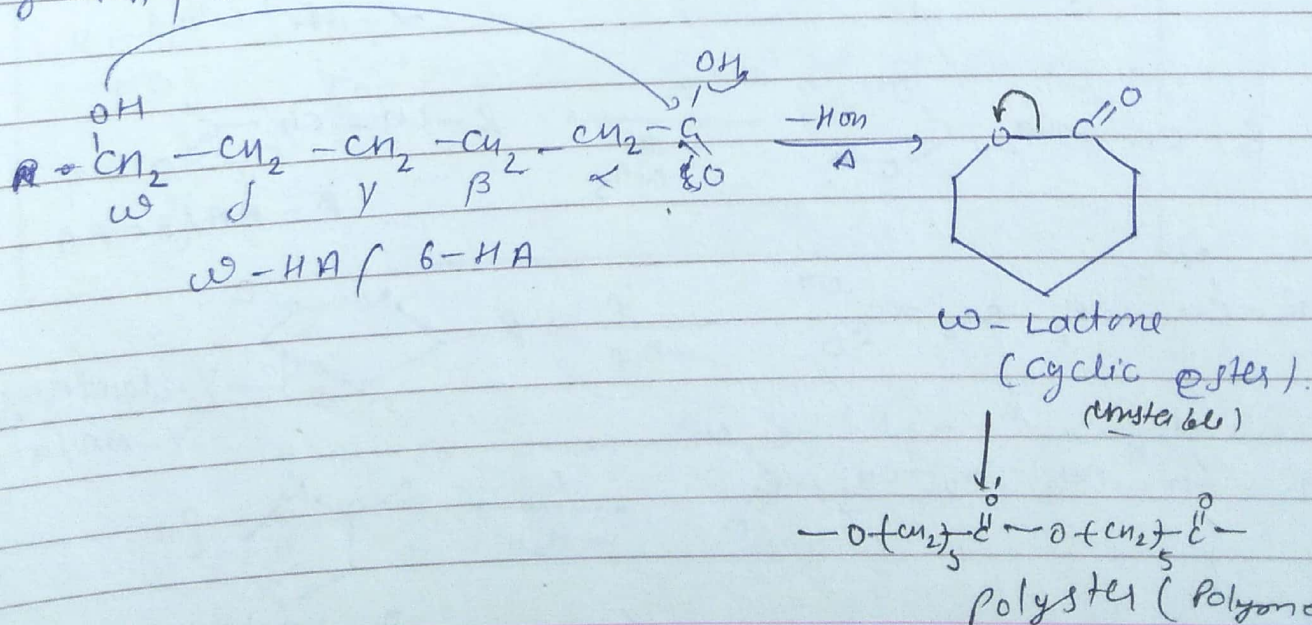 OH OH
CH2 – CH2 – CH2 – CH2 – CH2 – C –HOH O C O
ω δ γ β α O Δ
ω – HA / 6 – HA
ω – Lactone
(cyclic ester).
(unstable)
O O
— O-(CH2)5-C — O-(CH2)5-C —
polyster (